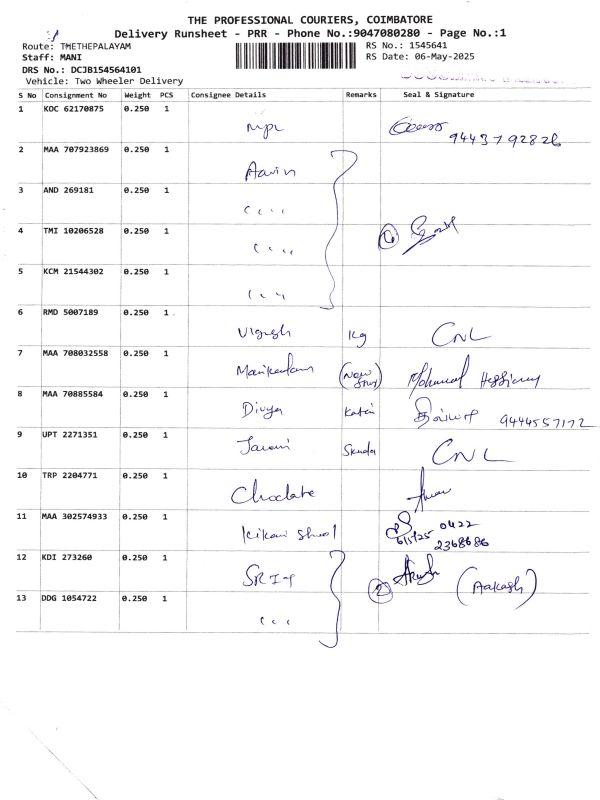 THE PROFESSIONAL COURIERS, COIMBATORE
Delivery Runsheet - PRR - Phone No.:9047080280 - Page No.:1
Route: TMETHEPALAYAM
RS No.: 1545641
Staff: MANI
RS Date: 06-May-2025
DRS No.: DCJB154564101
Vehicle: Two Wheeler Delivery
S No Consignment No Weight PCS Consignee Details Remarks Seal & Signature
1 KOC 62170875 0.250 1 mpl 9443792826
2 MAA 707923869 0.250 1 Aavin
3 AND 269181 0.250 1 ,, ,,
4 TMI 10206528 0.250 1 ,, ,, 4
5 KCM 21544302 0.250 1 ,, ,,
6 RMD 5007189 0.250 1 Vignesh Kg CNL
7 MAA 708032558 0.250 1 Manikandan Mohamed
8 MAA 70885584 0.250 1 Divya 9444557172
9 UPT 2271351 0.250 1 CNL
10 TRP 2204771 0.250 1 Choclate
11 MAA 302574933 0.250 1 Kikani 0422
2368686
12 KDI 273260 0.250 1 2 (Aakash)
13 DDG 1054722 0.250 1 ,, ,,